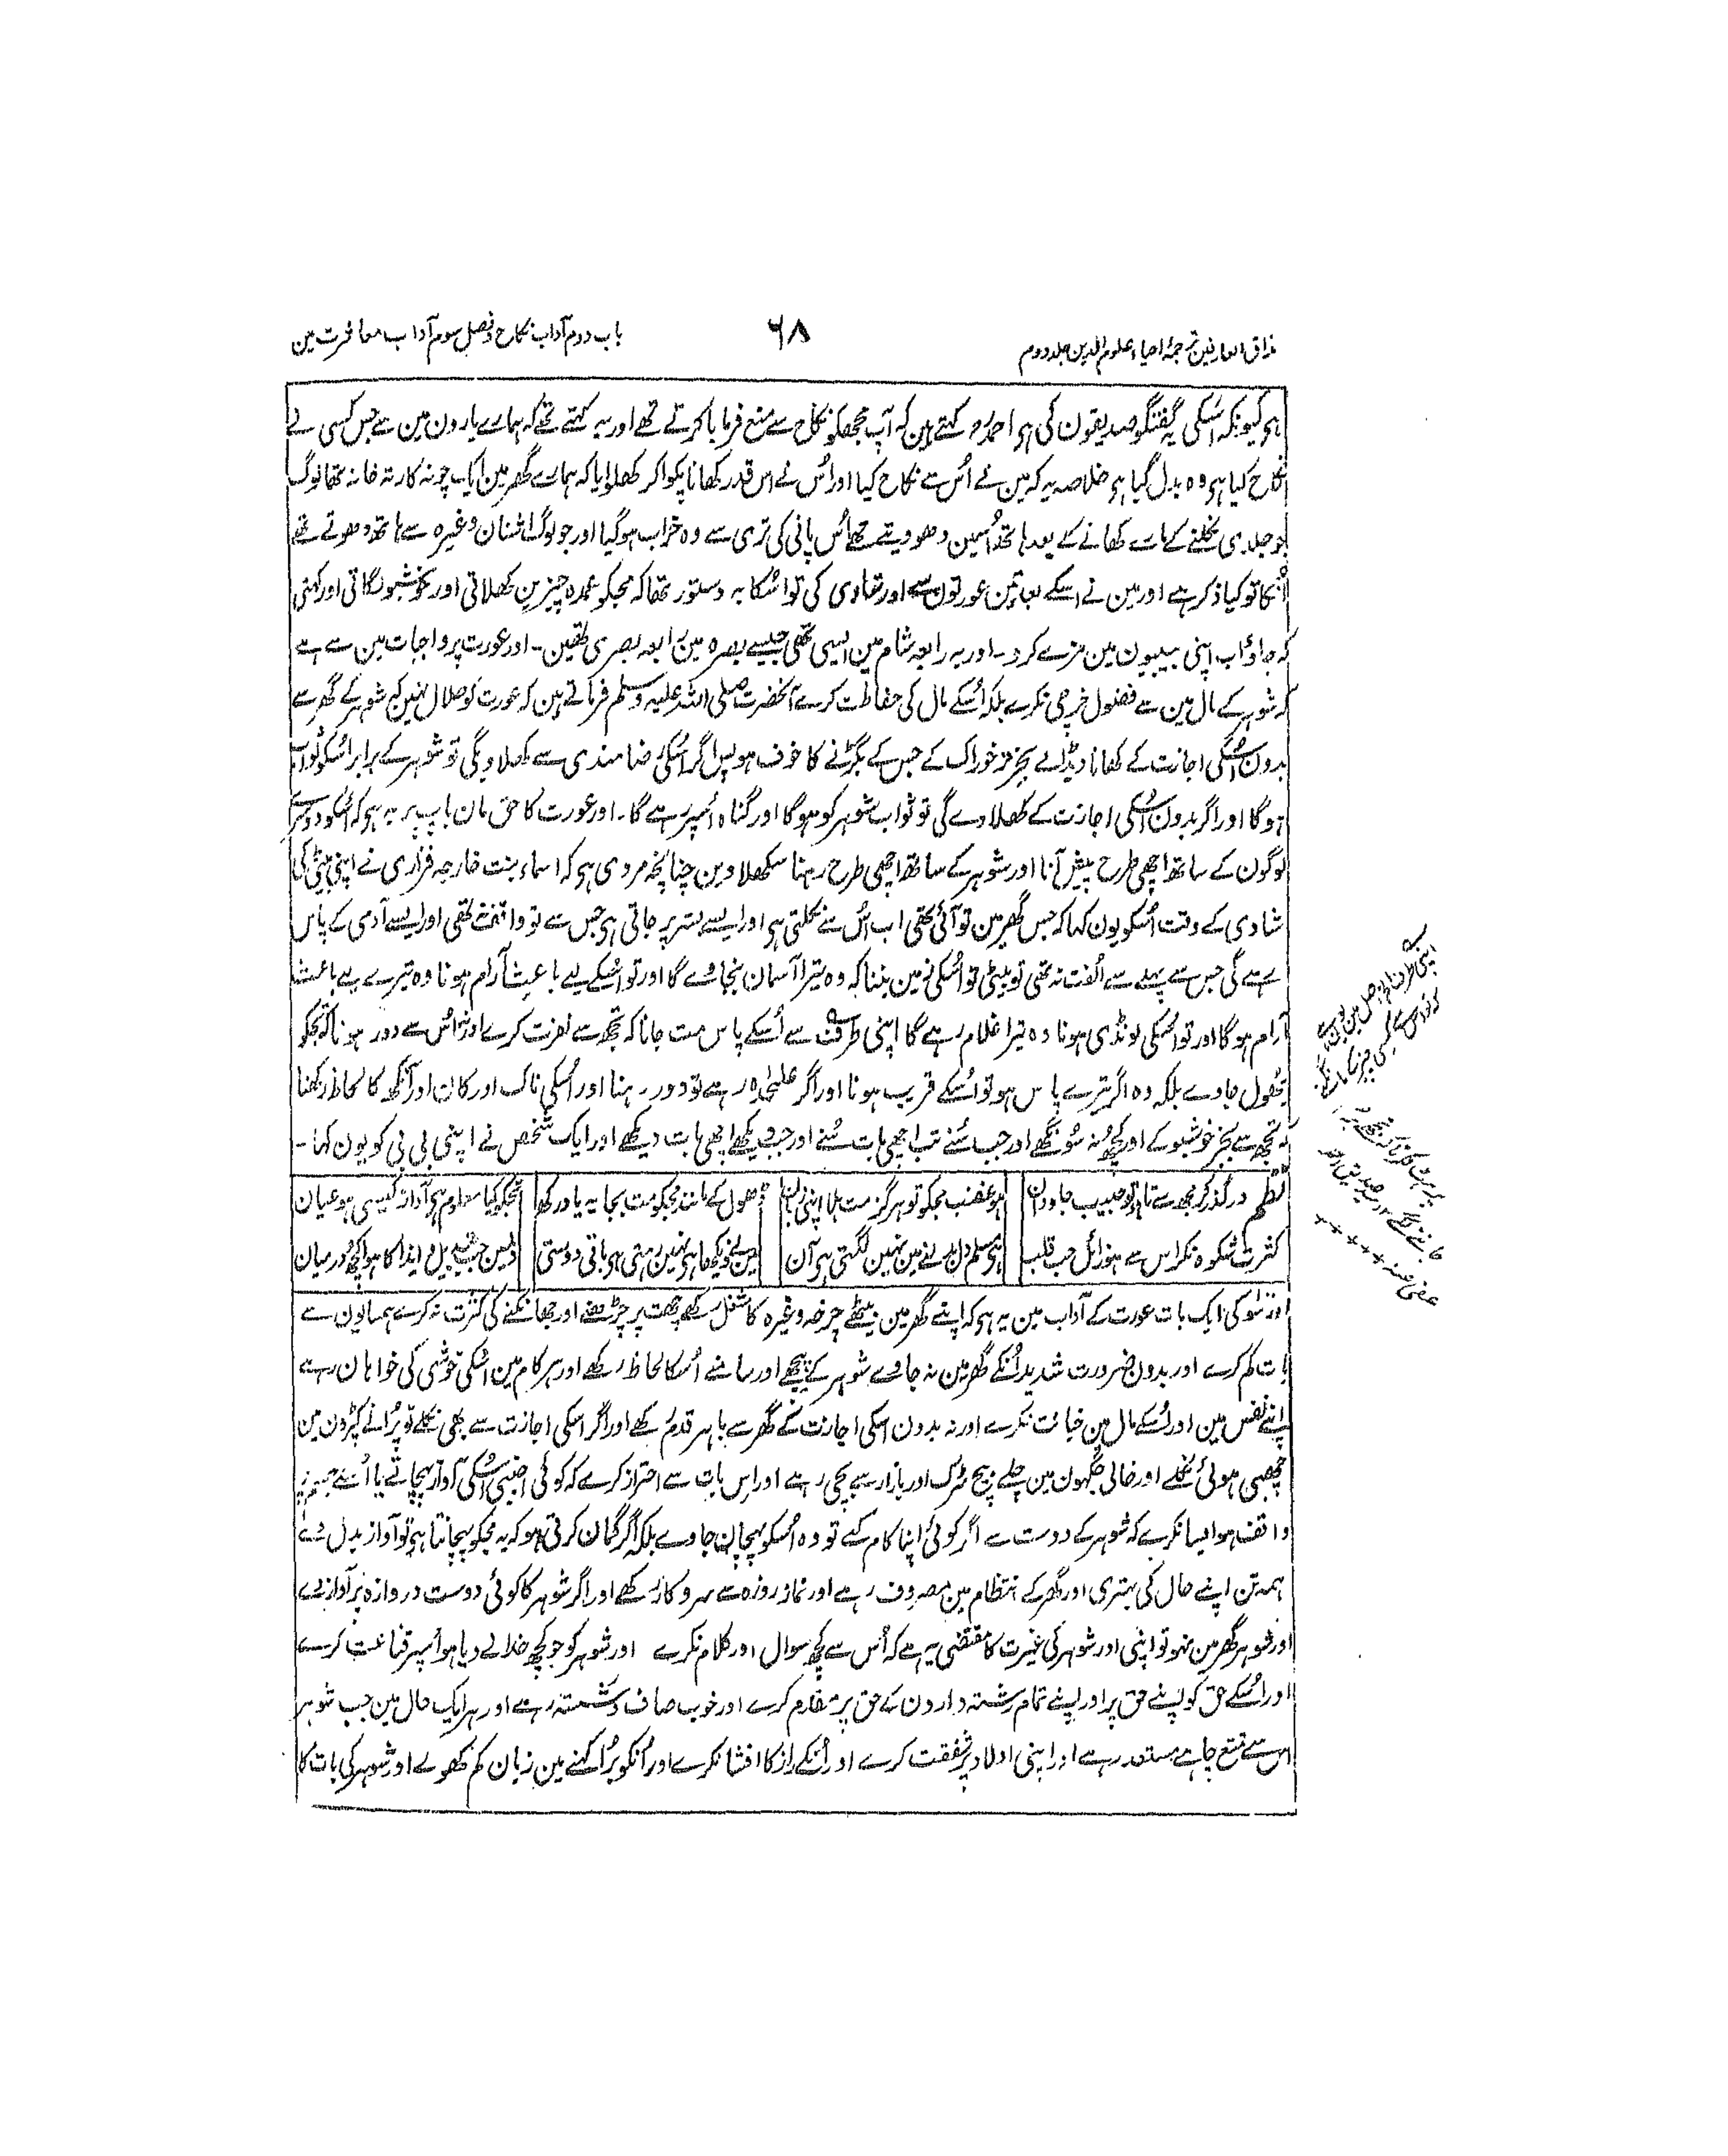 مذاق العارفین ترجمۂ احیاء علوم الدین جلد دوم
۶۸
باب دوم آداب نکاح و فصل سوم آداب معاشرت مین
ہو کیونکہ اُسکی یہ گفتگو صدیقون کی ہو احمدرح کہتے ہین کہ آپ مجھکو نکاح سے منع فرمایا کرتے تھے اور یہ کہتے تھے کہ ہمارے یارون مین سے جس کسی نے
نکاح کیا ہو وہ بدل گیا ہو خلاصہ یہ کہ مین نے اُس سے نکاح کیا اور اُس نے اس قدر کھانا پکوا کر کھلوایا کہ ہمارے گھر مین ایک چونہ کا رتہ خانہ تھا لوگ
جو جلدی نکلنے کے مارے کھانے کے بعد ہاتھ اُسمین دھو دیتے تھے اُس پانی کی تری سے وہ خراب ہو گیا اور جو لوگ اشنان وغیرہ سے ہاتھ دھوتے تھے
اُنکا تو کیا ذکر ہے اور مین نے اسکے بعد تین عورتون سے اور شادی کی تو اسکا یہ دستور تھا کہ مجکو عمدہ چیزین کھلاتی اور خوشبو لگاتی اور کہتی
کہ جاؤ اب اپنی بیبیون مین مزے کرو۔ اور یہ رابعہ شام مین ایسی تھی جیسے بصرہ مین رابعہ بصری تھین۔ اور عورت پر واجبات مین سے ہے
کہ شوہر کے مال مین سے فضول خرچی نکرے بلکہ اُسکے مال کی حفاظت کرے آنحضرت صلی اللہ علیہ وسلم فرماتے ہین کہ عورت کو حلال نہین کہ شوہر کے گھر سے
بدون اُسکی اجازت کے کھانا دیڈالے بجز تر خوراک کے جس کے بگڑنے کا خوف ہو پس اگر اُسکی رضامندی سے کھلاویگی تو شوہر کے برابر اُسکو ثواب
ہوگا اور اگر بدون اُسکی اجازت کے کھلاوے گی تو ثواب شوہر کو ہوگا اور گناہ اُسپر رہے گا۔ اور عورت کا حق مان باپ پر یہ ہو کہ اُسکو دوسرے
لوگون کے ساتھ اچھی طرح پیش آنا اور شوہر کے ساتھ اچھی طرح رہنا سکھلاوین چنانچہ مروی ہو کہ اسماء بنت خارجہ فزاری نے اپنی بیٹی کی
شادی کے وقت اُسکو یون کہا کہ جس گھر مین تو آئی تھی اب اُس سے نکلتی ہو اور ایسے بستر پر جاتی ہو جس سے تو واقف نہ تھی اور ایسے آدمی کے پاس
رہے گی جس سے پہلے سے اُلفت نہ تھی تو بیٹی تو اُسکی زمین بننا کہ وہ تیرا آسمان بنجاوے گا اور تو اُسکے لیے باعث آرام ہونا وہ تیرے لیے باعث
آرام ہوگا اور تو اُسکی لونڈی ہونا وہ تیرا غلام رہے گا اپنی طرف سے اُسکے پاس مت جانا کہ تجھ سے نفرت کرے اور نہ اُس سے دور ہونا کہ تجکو
بھول جاوے بلکہ وہ اگر تیرے پاس ہو تو اُسکے قریب ہونا اور اگر علیحدہ رہے تو دور رہنا اور اُسکی ناک اور کان اور آنکھ کا لحاظ رکھنا
کہ تجھ سے بجز خوشبو کے اور کچھ نہ سونگھے اور جب سُنے تب اچھی بات سُنے اور جب دیکھے اچھی بات دیکھے اور ایک شخص نے اپنی بی بی کو یون کہا۔
نظم در گذر کر مجھ سے تا ہو تو حبیب جاودان
ہو غضب مجکو تو ہرگز مت ہلا اپنی زبان
ڈھول کے مانند مجکو مت بجا یہ یاد رکھ
تجکو کیا معلوم ہو آواز کیسی ہو عیان
کثرت شکوہ نکر اس سے ہو زائل حب قلب
مین نے دیکھا ہو نہین رہتی ہو باقی دوستی
دلمین جب
اور شوکی ایک بات عورت کے آداب مین یہ ہو کہ اپنے گھر مین بیٹھے چرخہ وغیرہ کا شغل رکھے چھت پر چڑھنے اور جھانکنے کی کثرت نہ کرے ہمسایون سے
بات کم کرے اور بدون ضرورت شدید اُنکے گھر مین نہ جاوے شوہر کے پیچھے اور سامنے اُسکا لحاظ رکھے اور ہر کام مین اُسکی خوشی کی خواہان رہے
اپنے نفس مین اور اُسکے مال مین خیانت نکرے اور نہ بدون اُسکی اجازت کے گھر سے باہر قدم رکھے اور اگر اسکی اجازت سے بھی نکلے تو پُرانے کپڑون مین
چھپی ہوئی نکلے اور خالی جگہون مین چلے بیچ سڑک اور بازار سے بچی رہے اور اِس بات سے احتراز کرے کہ کوئی اجنبی اُسکی آواز پہچانے یا اُسکے جسم پر
واقف ہو ایسا نکرے کہ شوہر کے دوست سے اگر کوئی اپنا کام کہے تو وہ اُسکو پہچان جاوے بلکہ اگر گمان کرتی ہو کہ یہ مجکو پہچانتا ہو تو آواز بدل دے
ہمہ تن اپنے حال کی بہتری اور گھر کے انتظام مین مصروف رہے اور نماز روزہ سے سروکار رکھے اور اگر شوہر کا کوئی دوست دروازہ پر آواز دے
اور شوہر گھر مین نہو تو اپنی اور شوہر کی غیرت کا مقتضی یہ ہے کہ اُس سے کچھ سوال اور کلام نکرے اور شوہر کو جو کچھ خدا نے دیا ہو اُسپر قناعت کرے
اور اُسکے حق کو اپنے حق پر اور اپنے تمام رشتہ دارون کے حق پر مقدم کرے اور خوب صاف و شستہ رہے اور ہر ایک حال مین جب شوہر
اس سے تمتع چاہے مستعد رہے اور اپنی اولاد پر شفقت کرے اور اُنکے راز کا افشا نکرے اور اُنکو بُرا کہنے مین زبان کم کھولے اور شوہر کی بات کا